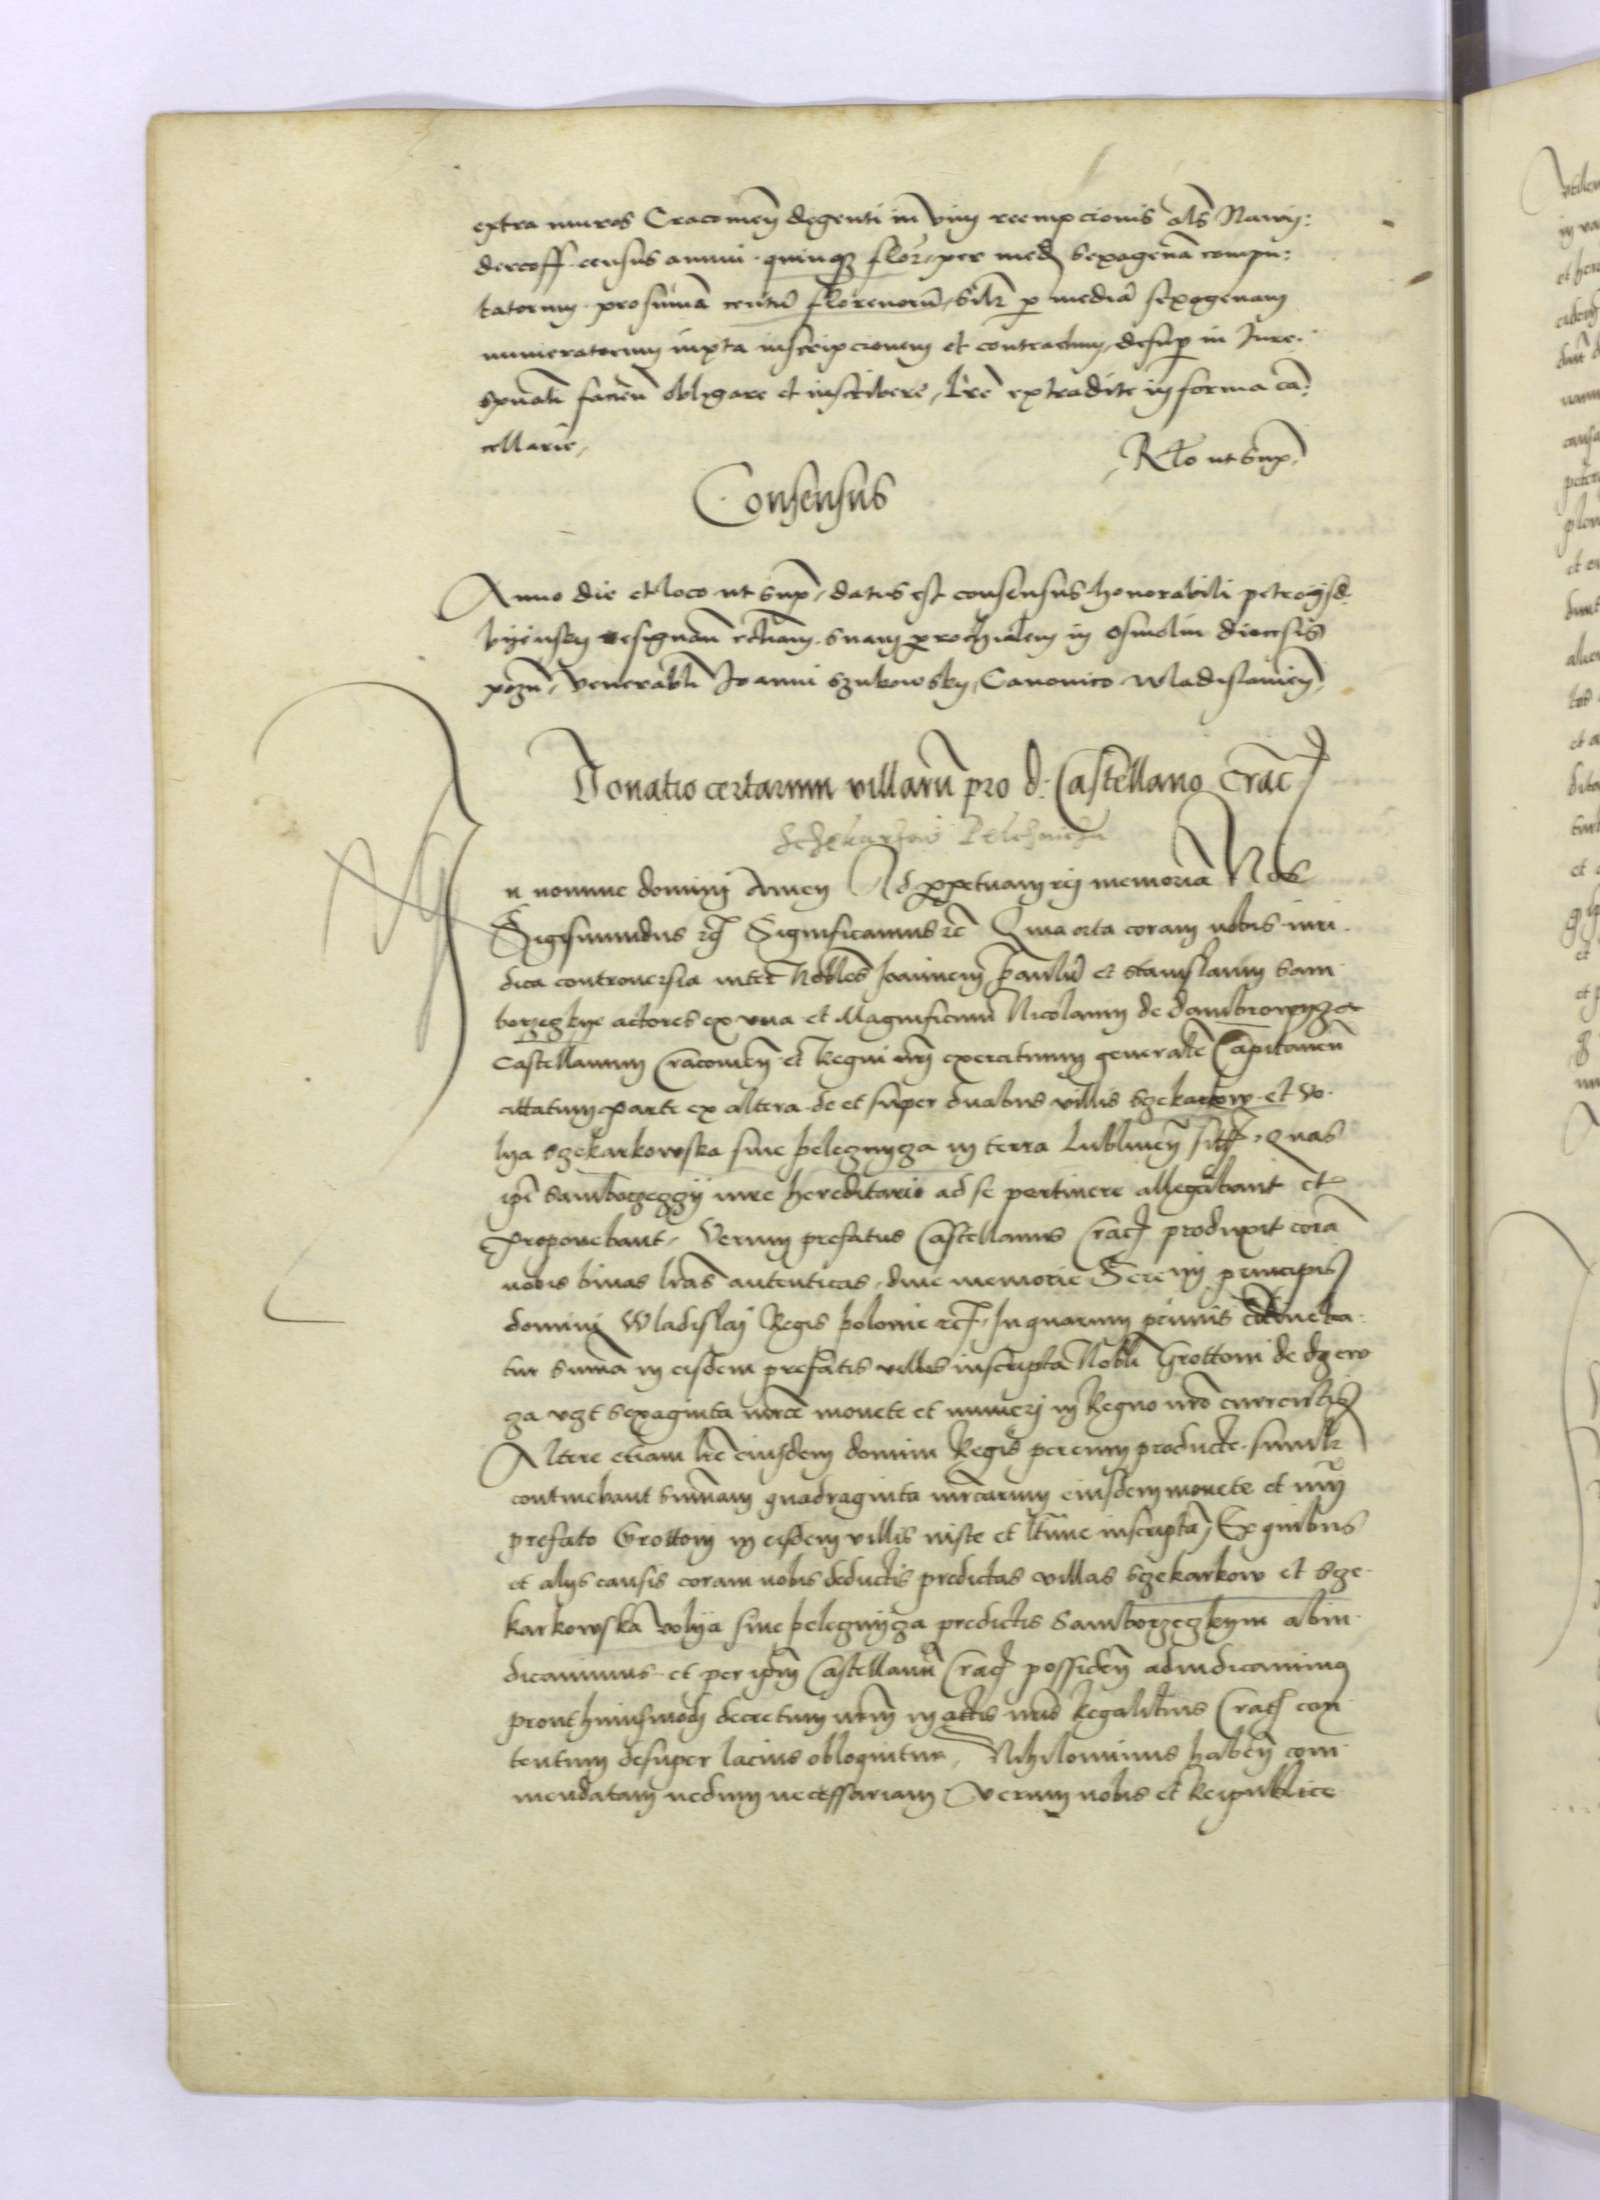 extra muros Cracovien̄ degenti in vim reempcionis al̄s Nawij:
dercoff census annui quinq3 flor. per med sexagenā compu:
tatorum pro sūmā centū florenorū sil̄r p mediā sexagenam
numeratorum iuxta inscripcionem et contractum desup in Iure
facien̄ obligare et inscribere, l̄re extradite in forma cā:
cellarie, Rl̄o ut sup.
Consensus
Anno die et loco ut sup. datus est consensus honorabili petro
resignan̄ eccl̄iam suam parochialem in Osmolin diocesis
pozn̄. venerabli Joanni Canonico wladislavien̄
Donatio certarum villarū pro d. Castellano Crac
Sczekarkow Pelcznicza
In nomine domini Amen Ad ppetuam rei memoriā Nos
Sigismundus rc̄ Significamus rc̄ Quia orta coram nobis iuri
dica controversia inter Nobiles Joannem paulū et stanislaum Sam
borzeczkye actores ex una et Magnificum Nicolaum de dambrowycza
Castellanum Cracovien̄ et Regni nr̄i exercituum generalē Capitaneū
cittatum parte ex altera de et super duabus villis sczekarkow et wo
lya sczekarkowska sive pelcznycza in terra Lublinen̄ sitis, Quas
ip̄i Samborzeczzij iure hereditario ad se pertinere allegabant et
proponebant, Verum prefatus Castellanus Crac̄ produxit corā
nobis binas l̄ras autenticas dive memorie Serenissimi principis
domini Wladislai Regis polonie rc̄, In quarum primis contineba
tur summa in eisdem prefatis villis inscripta Nobli Grottoni de
vcz sexaginta mr̄ce monete et numeri in Regno nr̄o currentis
Altere etiam l̄re eiusdem domini Regis per eum producte similr
continebant summam quadraginta mr̄carum eiusdem monete et nu̅i
prefato Grottoni in eisdem villis iuste et l̄time inscriptā, Ex quibus
et alijs causis coram nobis deductis predictas villas sczekarkow et scze
karkowska volija sive pelcznijcza predictis Samborzeczkym abiu
dicavimus et per ip̄m Castellanū Crac̄ possiden̄ adiudicavimus
prout huiusmodi decretum nr̄m in actis nr̄is Regalibus Crac̄ con
tentum desuper lacius obloquitur, Nihilominus haben̄ com
mendatam nedum necessariam verum nobis et Reipublice